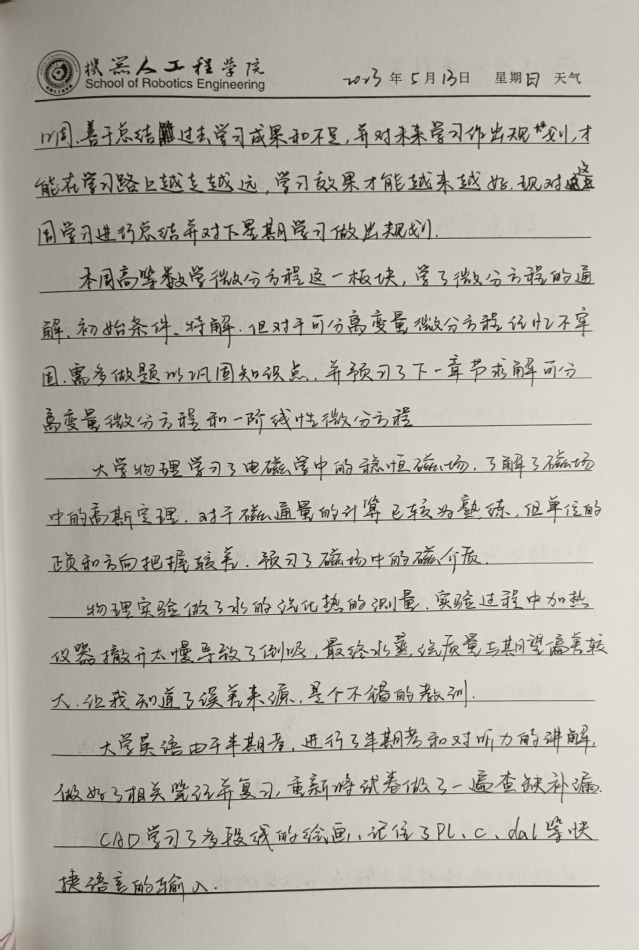 机器人工程学院
School of Robotics Engineering
2023 年 5 月 13 日 星期日 天气
周.善于总结过去学习成果和不足,并对未来学习作出规划,才
能在学习路上越走越远,学习效果才能越来越好.现对这
周学习进行总结并对下星期学习做出规划.
本周高等数学微分方程这一板块,学了微分方程的通
解、初始条件、特解.但对于可分离变量微分方程记忆不牢
固.需多做题以巩固知识点,并预习了下一章节求解可分
离变量微分方程和一阶线性微分方程
大学物理学习了电磁学中的稳恒磁场.了解了磁场
中的高斯定理.对于磁通量的计算已较为熟练,但单位的
和方向把握较差.预习了磁场中的磁介质.
物理实验做了水的汽化热的测量.实验过程中加热
仪器撤开太慢导致了倒吸,最终水蒸汽质量与期望偏差较
大.让我知道了误差来源,是个不错的教训.
大学英语由于半期考,进行了半期考和对听力的讲解,
做好了相关笔记并复习,重新将试卷做了一遍查缺补漏.
CAD学习了多段线的绘画,记住了PL、c、dal等快
捷语言的输入.